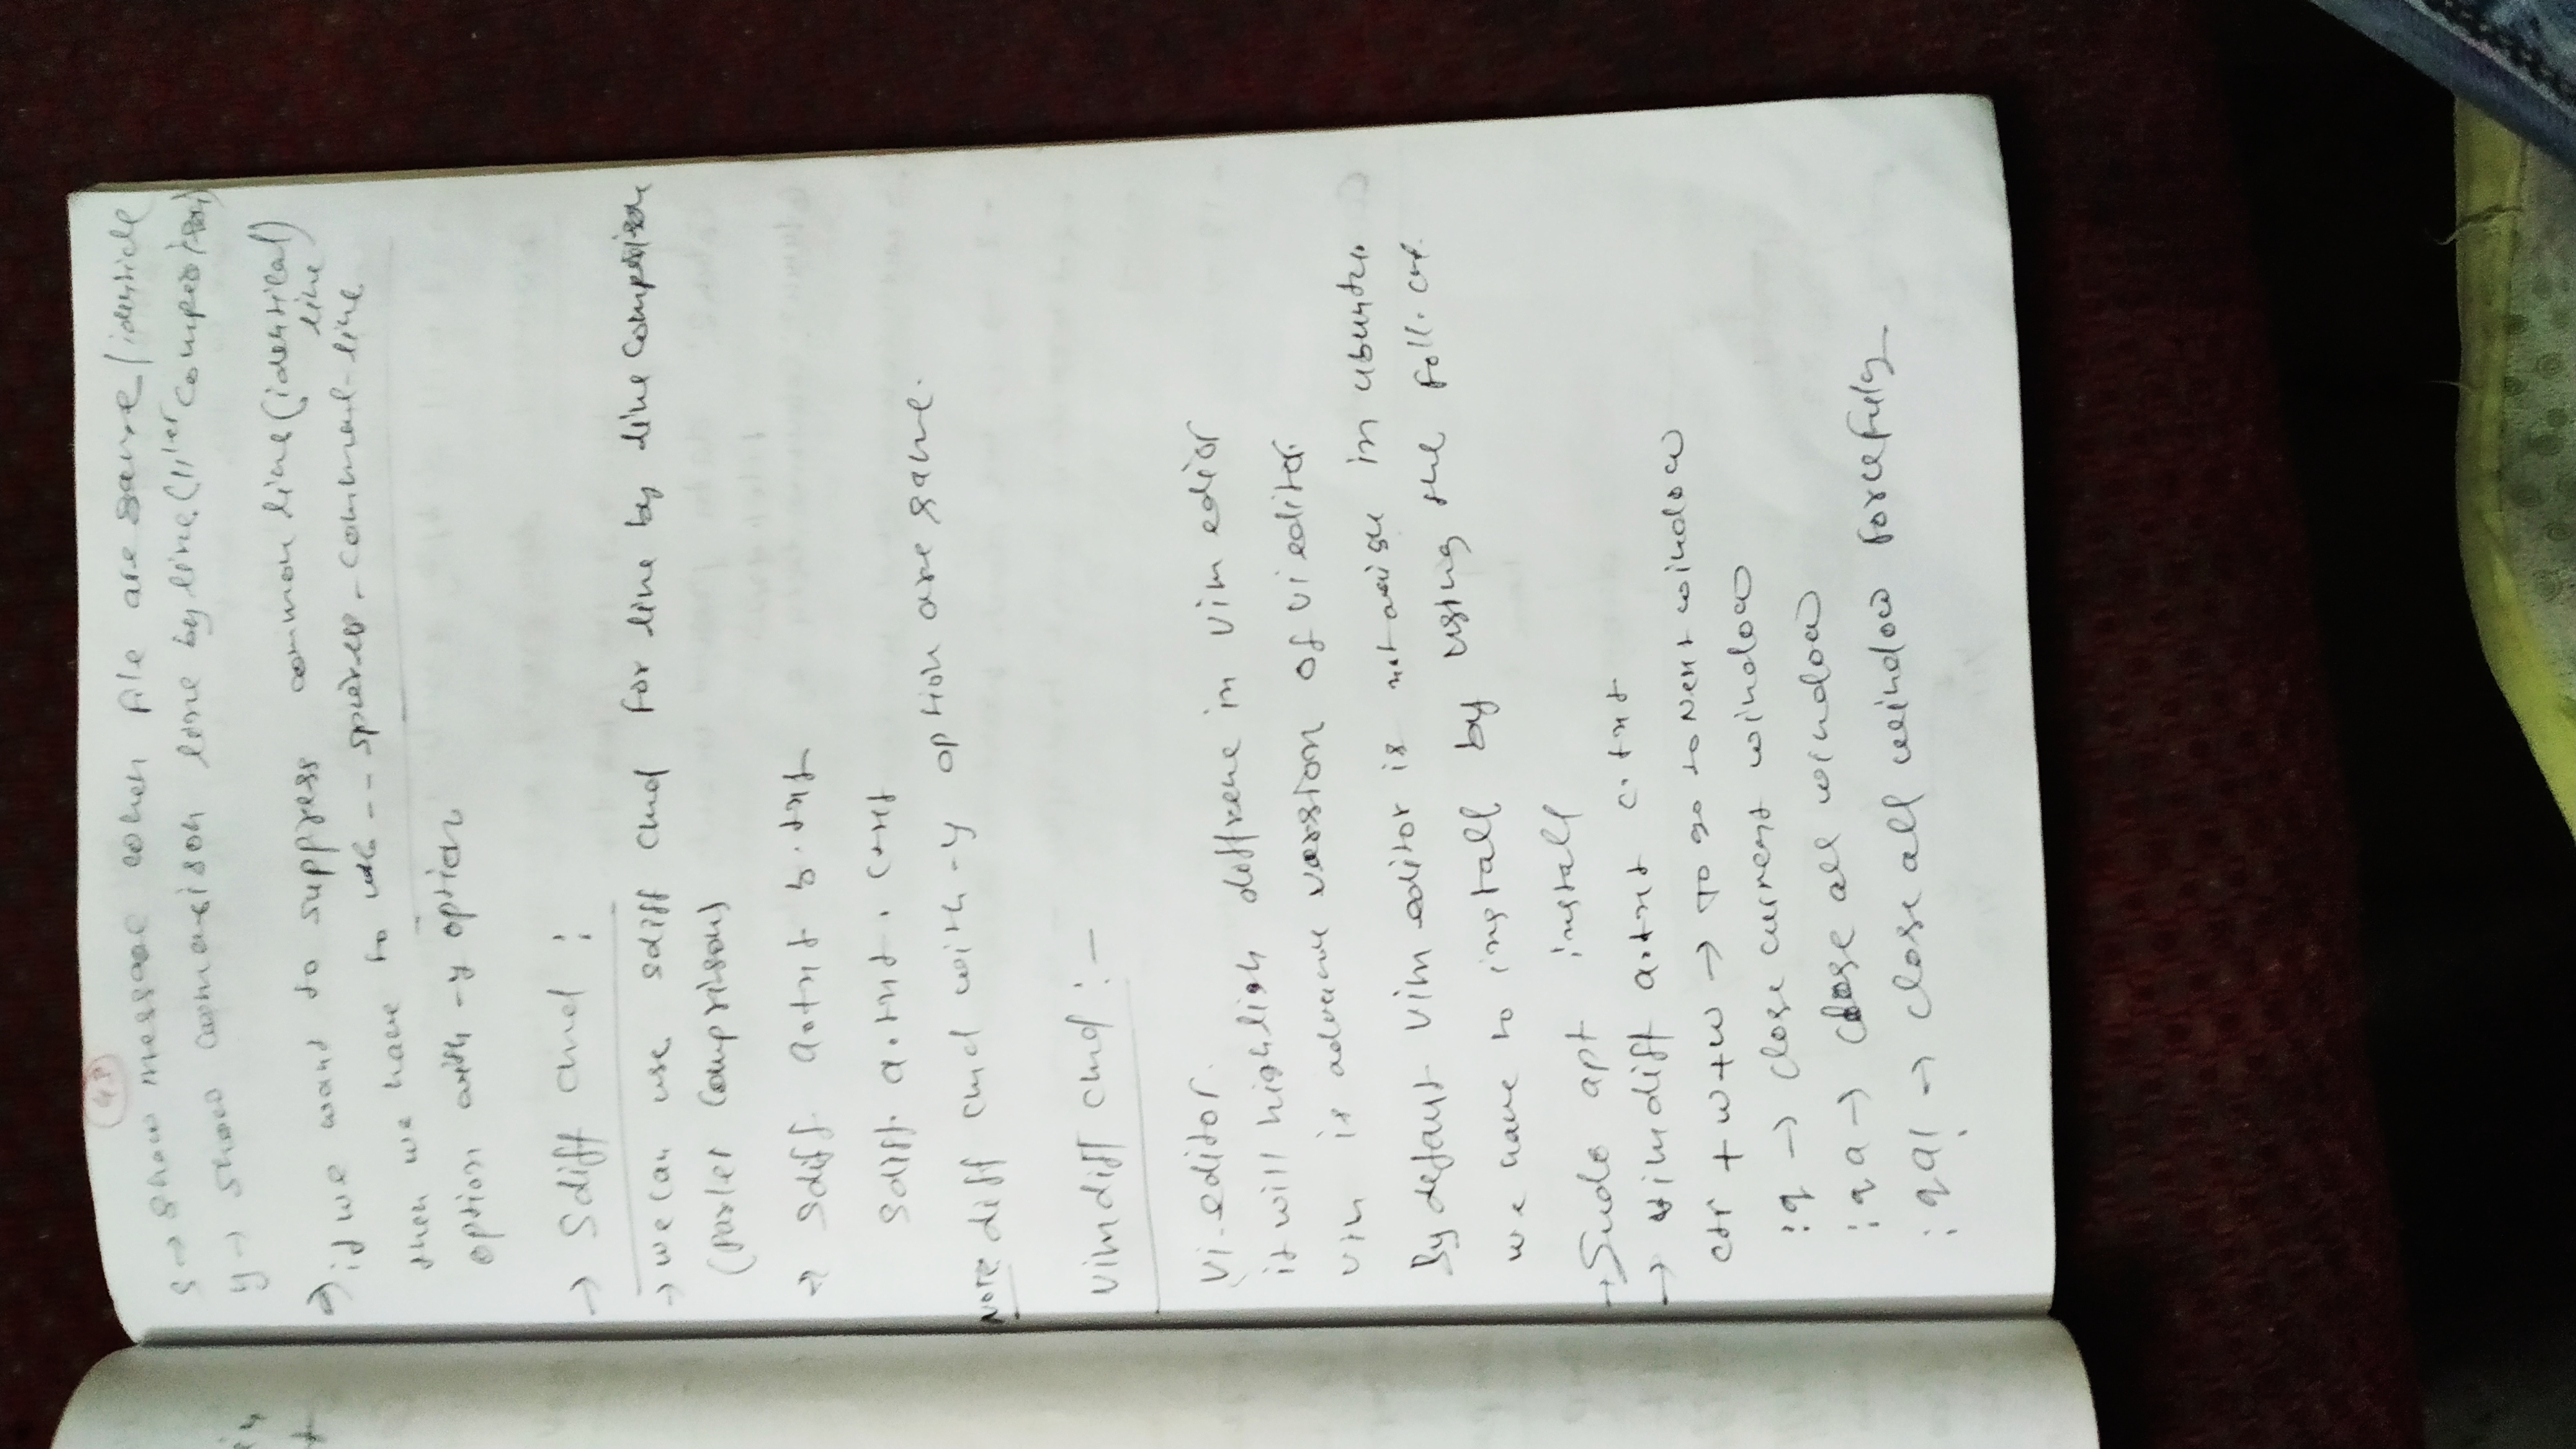 48
s → show message when file are same / identicle
y → show comparison line by line (11'er comperison)
→ if we want to suppress common line (identical)
line
then we have to use -- spueress - common - line
option with -y option
→ Sdiff cmd :
→ we can use sdiff cmd for line by line comprison
(parler Comprison)
→ Sdiff a.txt b.txt
Sdiff a.txt . c.txt
Note diff cmd with -y option are same.
vimdiff cmd : -
Vi-editor.
it will highligh diffrene in vim edior
vim is advance version of vi editor.
By defaut vim editor is not in ubuntu.
we have to install by using the foll.
→ Sudo apt install
→ vimdiff a.txt c.txt
ctr + w + w → To go to Next window
:q → close current window
:qa → close all window
:qa! → close all window forcefuly